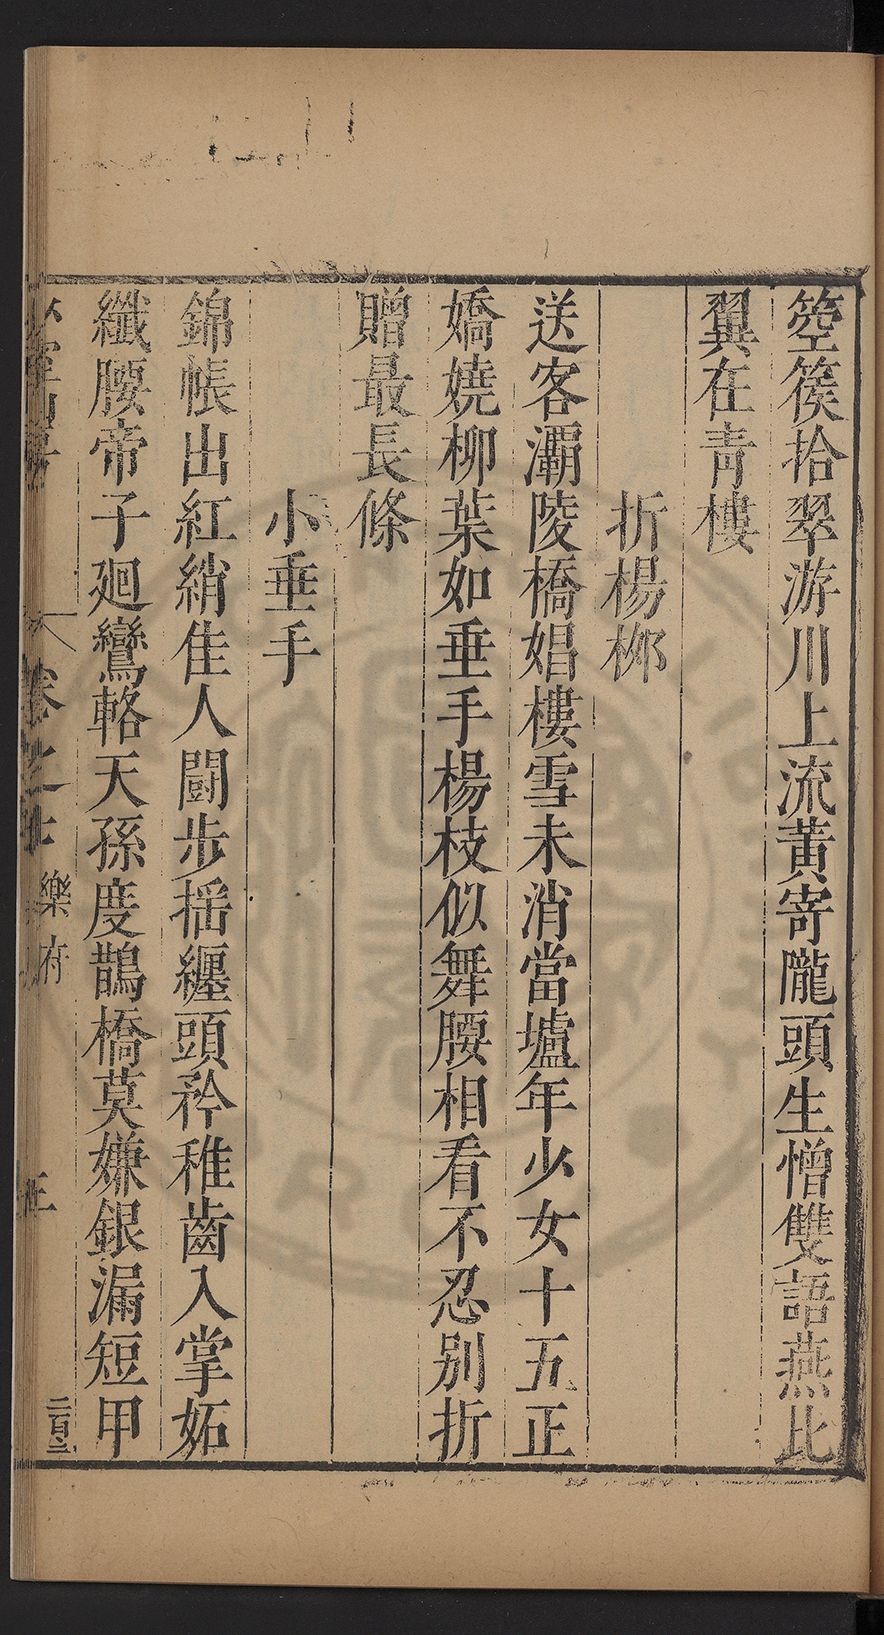 箜篌拾翠游川上流黃寄隴頭生憎雙語燕比
翼在青樓
折楊柳
送客灞陵橋娼樓雪未消當壚年少女十五正
嬌嬈柳葉如垂手楊枝似舞腰相看不忍別折
贈最長條
小垂手
錦帳出紅綃佳人鬭步搖纏頭矜稚齒入掌妬
纖腰帝子廻鸞輅天孫度鵲橋莫嫌銀漏短甲
卷之 樂府